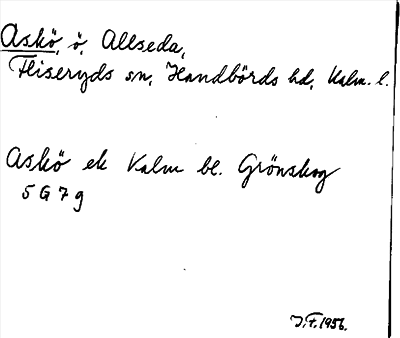 Askö, ö, Allseda,
Fliseryds sn, Handbörds hd, Kalm. l.
Askö ek Kalm bl. Grönskog
5 G 7 g
J.F. 1956.